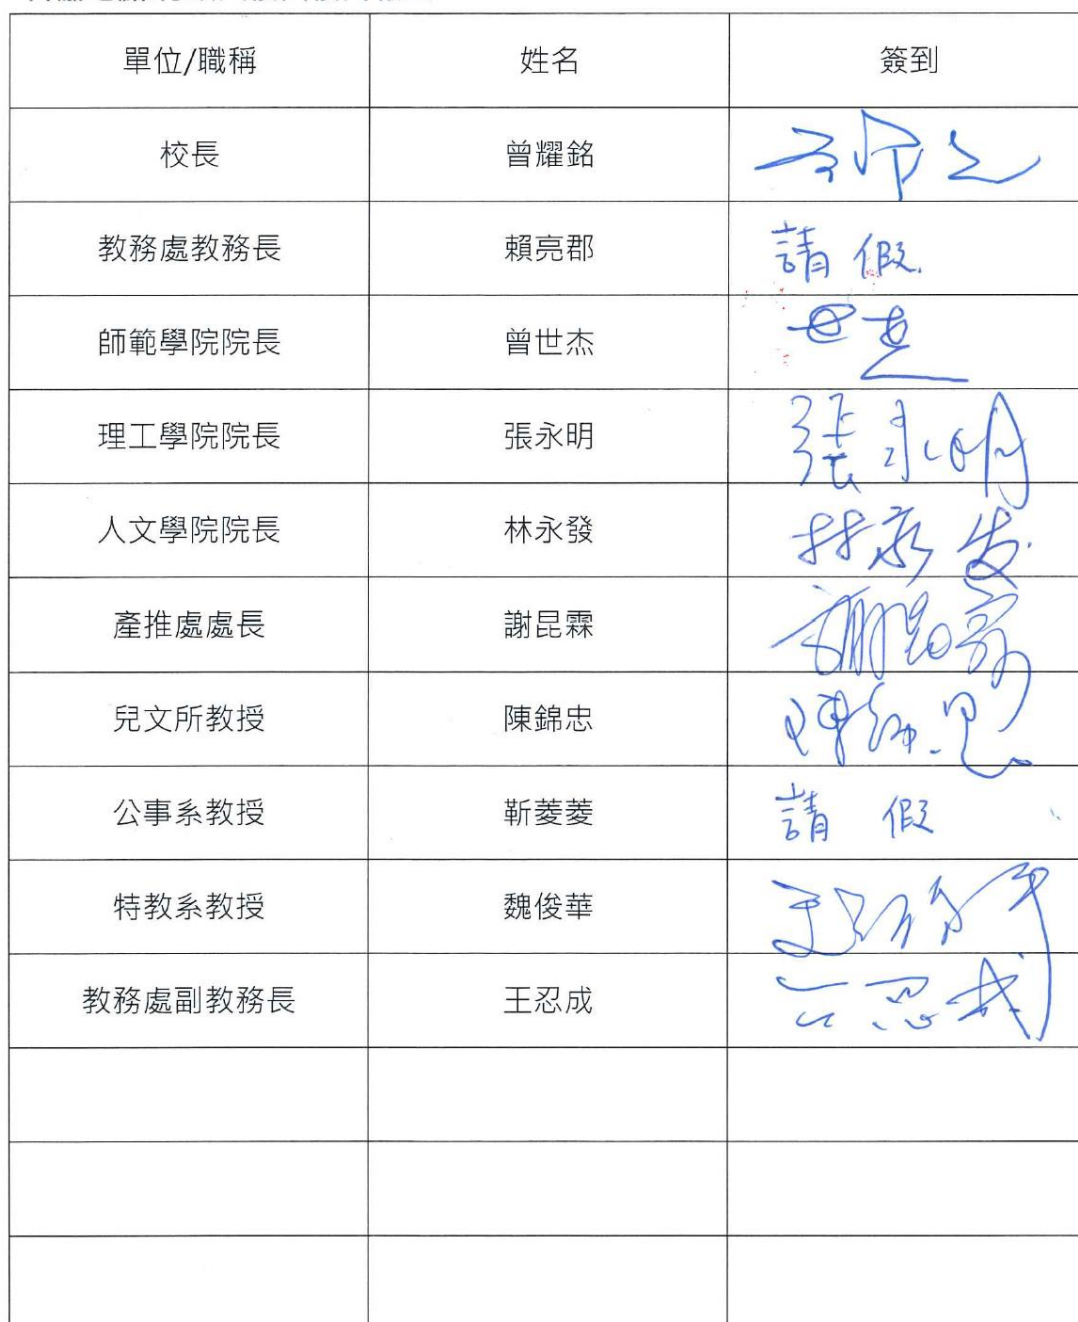 單位/職稱 姓名 簽到
校長 曾耀銘
教務處教務長 賴亮郡 請假
師範學院院長 曾世杰
理工學院院長 張永明 張永明
人文學院院長 林永發 林永发
產推處處長 謝昆霖 謝昆霖
兒文所教授 陳錦忠 陳錦忠
公事系教授 靳菱菱 請假
特教系教授 魏俊華
教務處副教務長 王忍成 王忍成